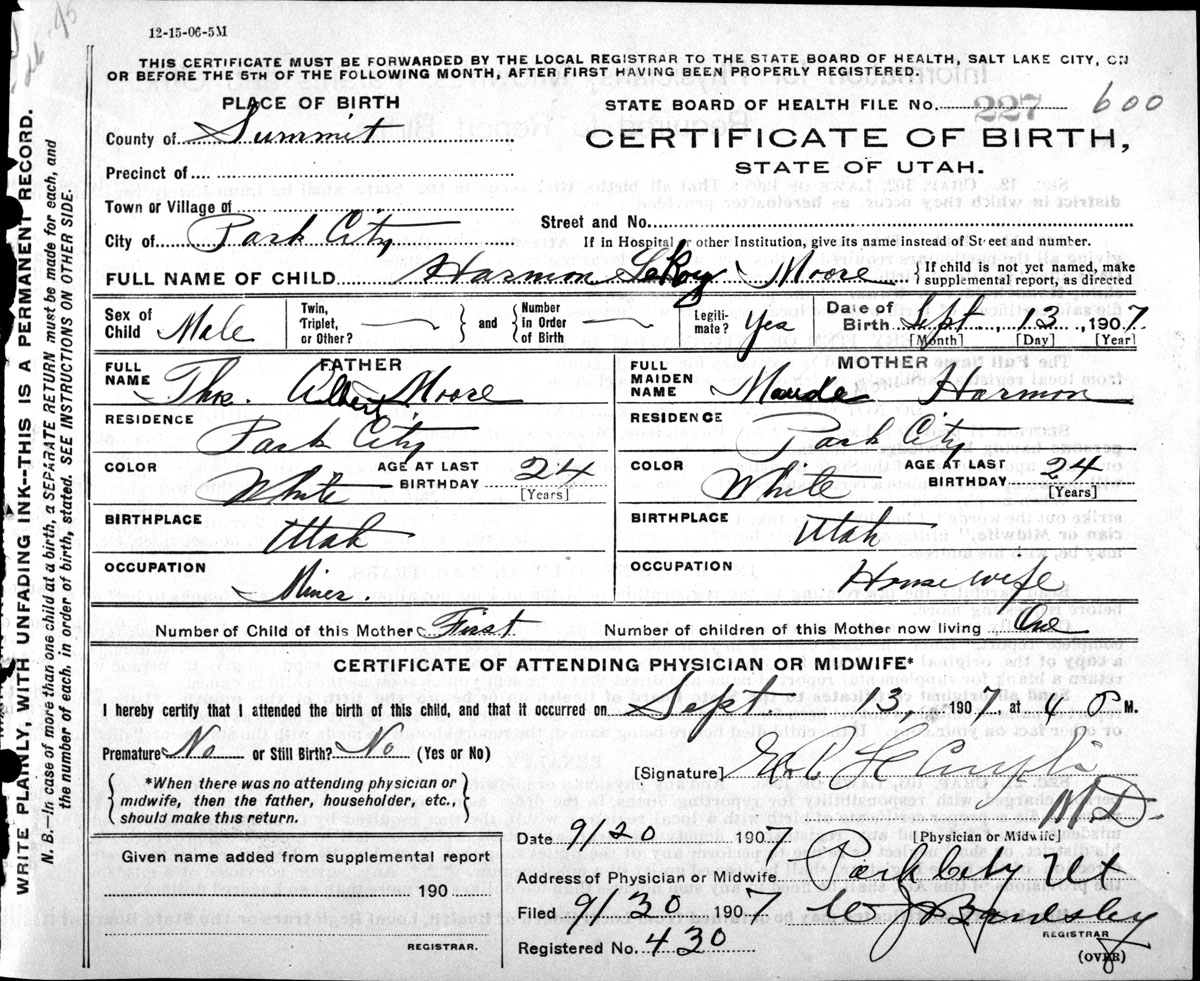 12-15-06-5M
THIS CERTIFICATE MUST BE FORWARDED BY THE LOCAL REGISTRAR TO THE STATE BOARD OF HEALTH, SALT LAKE CITY, ON
OR BEFORE THE 5TH OF THE FOLLOWING MONTH, AFTER FIRST HAVING BEEN PROPERLY REGISTERED.
PLACE OF BIRTH
County of Summit
Precinct of
Town or Village of
City of Park City
STATE BOARD OF HEALTH FILE No. 227 600
CERTIFICATE OF BIRTH,
STATE OF UTAH.
Street and No.
If in Hospital or other Institution, give its name instead of Street and number.
FULL NAME OF CHILD Harmon LeRoy Moore { If child is not yet named, make
supplemental report, as directed
Sex of Child Male
Twin, Triplet, or Other? — } and { Number in Order of Birth —
Legitimate? Yes
Date of Birth Sept, 13, 1907.
[Month] [Day] [Year]
FATHER
FULL NAME Thos. Albert Moore
RESIDENCE Park City
COLOR White AGE AT LAST BIRTHDAY 24
[Years]
BIRTHPLACE Utah
OCCUPATION Miner.
MOTHER
FULL MAIDEN NAME Maude Harmon
RESIDENCE Park City
COLOR White AGE AT LAST BIRTHDAY 24
[Years]
BIRTHPLACE Utah
OCCUPATION Housewife
Number of Child of this Mother First Number of children of this Mother now living One
CERTIFICATE OF ATTENDING PHYSICIAN OR MIDWIFE*
I hereby certify that I attended the birth of this child, and that it occurred on Sept. 13, 1907, at 4 M.
Premature No or Still Birth? No (Yes or No)
*When there was no attending physician or
midwife, then the father, householder, etc.,
should make this return.
Given name added from supplemental report
190
REGISTRAR.
[Signature] M.D.
[Physician or Midwife]
Date 9/20 1907
Address of Physician or Midwife Park City Ut
Filed 9/30 1907
REGISTRAR
Registered No. 430
(OVER)
WRITE PLAINLY, WITH UNFADING INK--THIS IS A PERMANENT RECORD.
N. B.—In case of more than one child at a birth, a SEPARATE RETURN must be made for each, and
the number of each, in order of birth, stated. SEE INSTRUCTIONS ON OTHER SIDE.